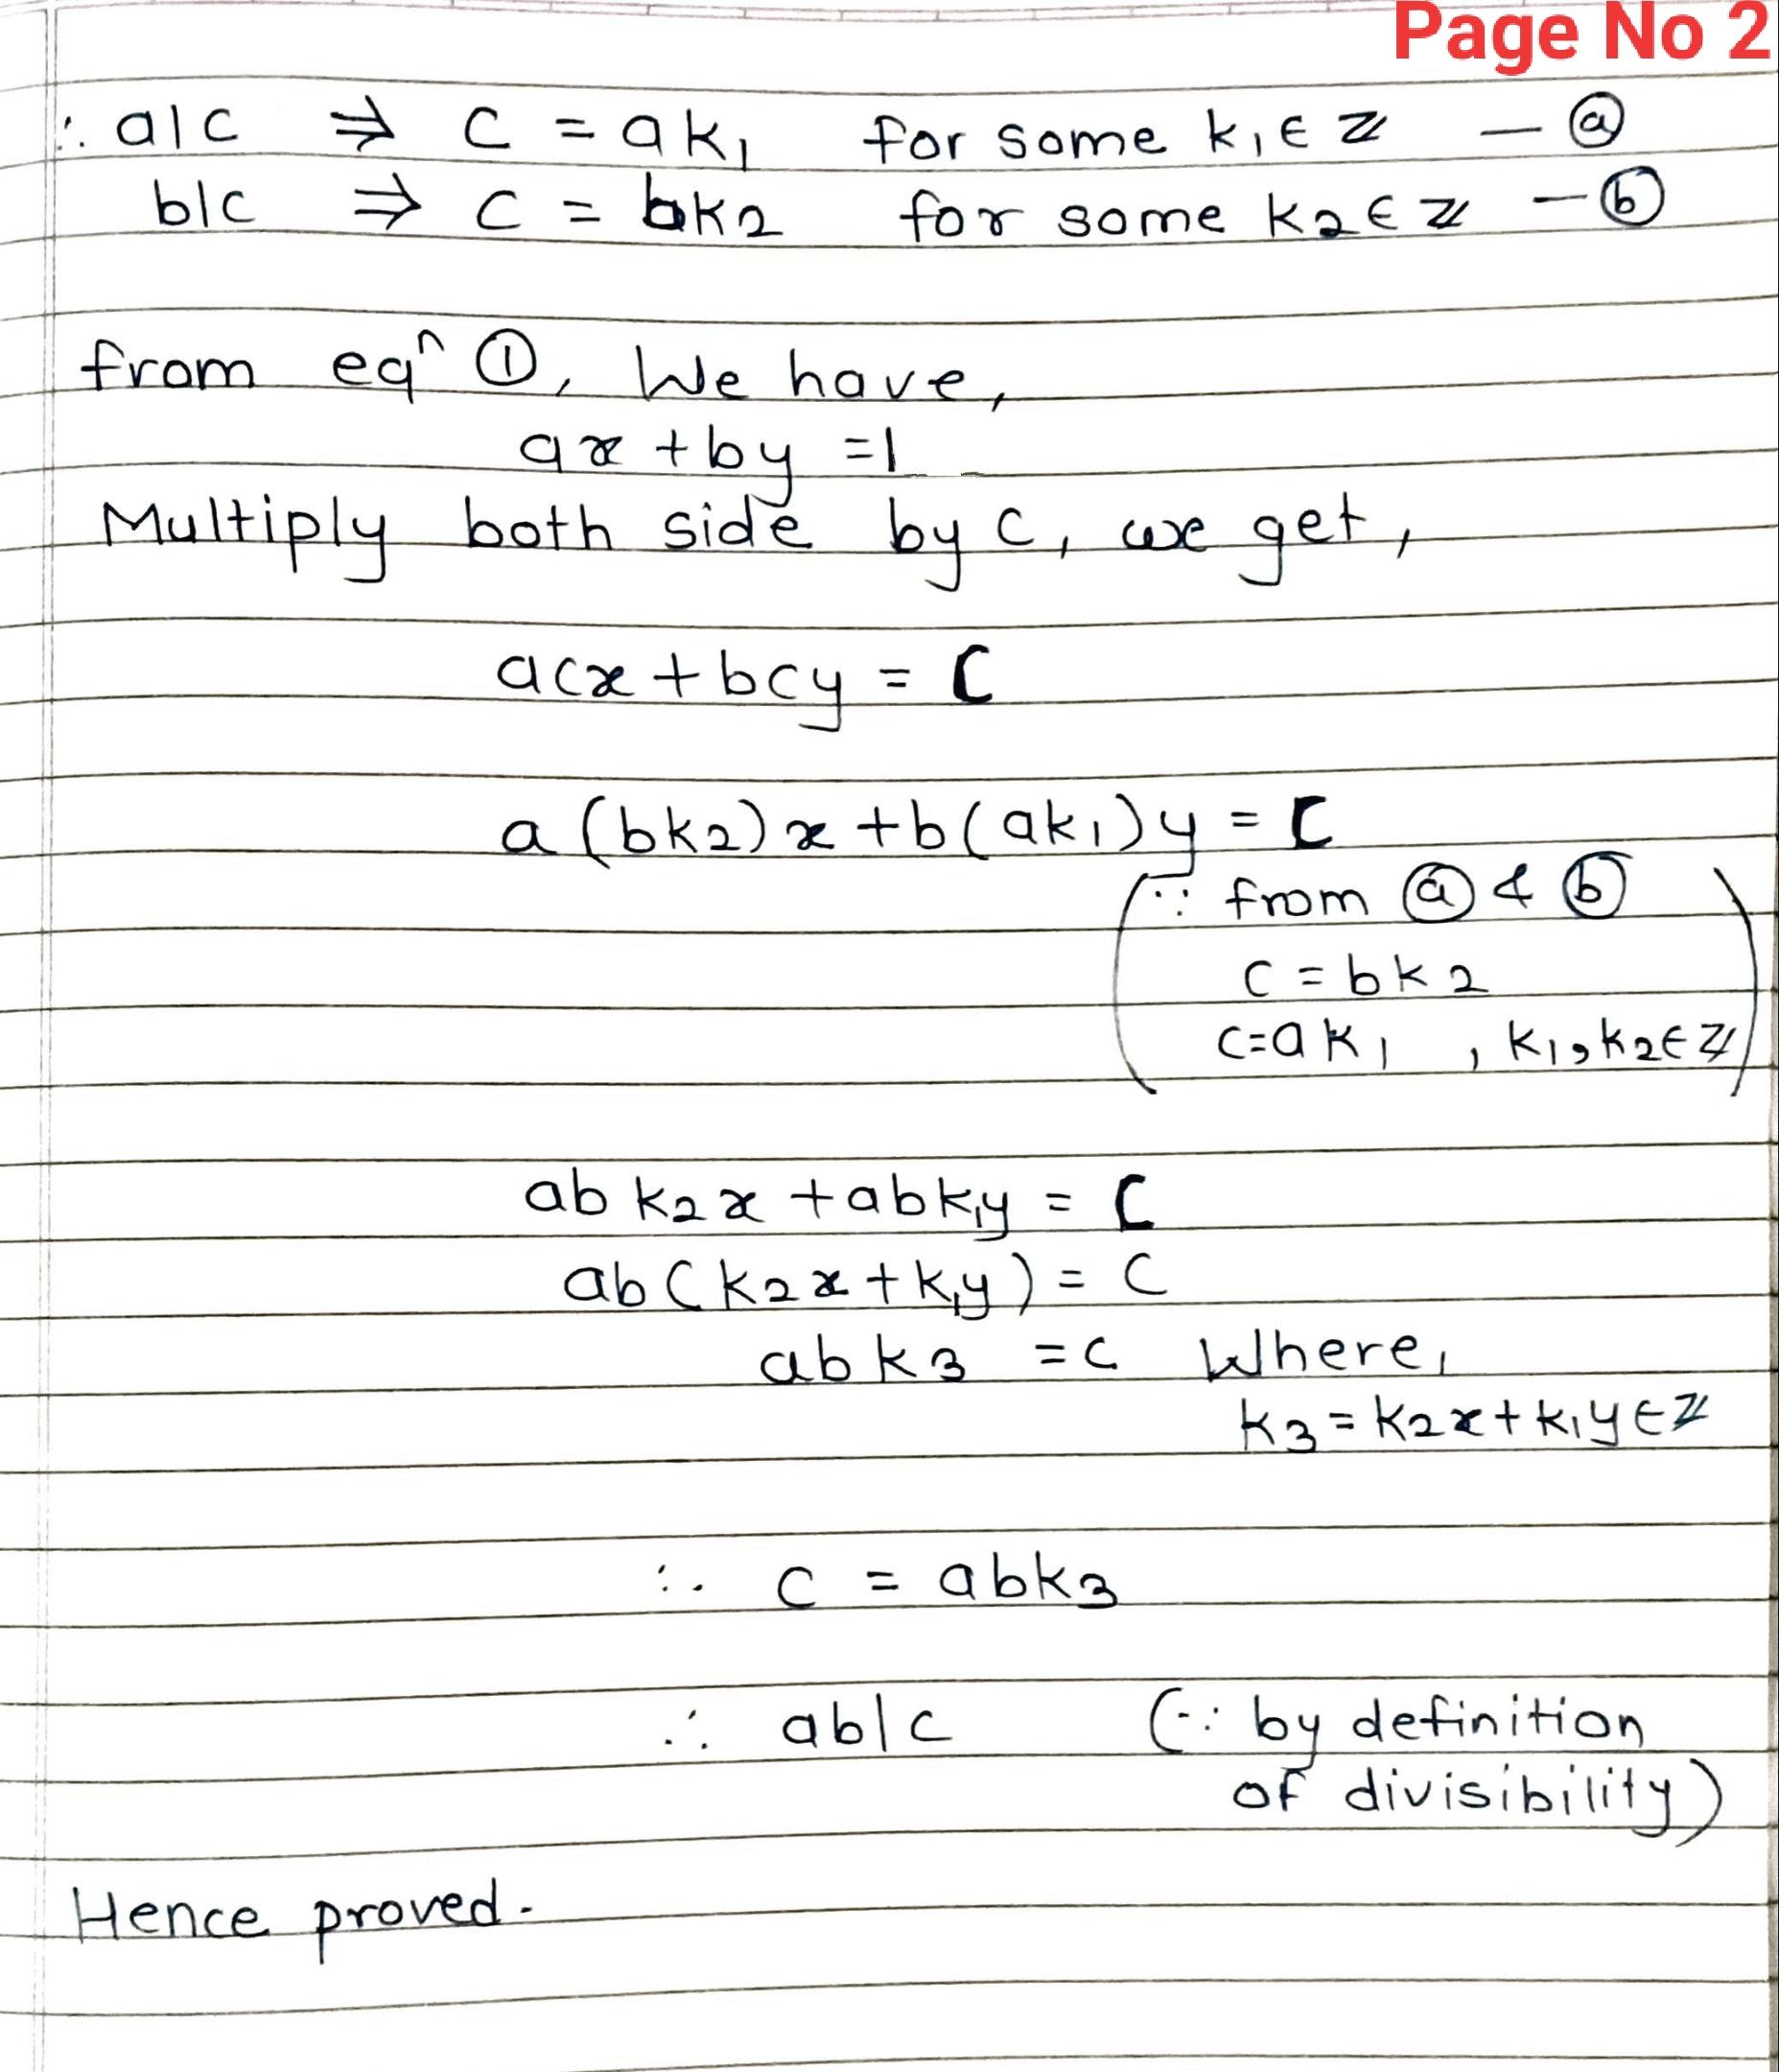 Page No 2
∴ a|c ⇒ c = ak₁ for some k₁ ∈ ℤ — ⓐ
b|c ⇒ c = bk₂ for some k₂ ∈ ℤ — ⓑ
from eqⁿ ①, We have,
ax + by = 1
Multiply both side by c, we get,
acx + bcy = c
a(bk₂)x + b(ak₁)y = c
(∵ from ⓐ & ⓑ
c = bk₂
c = ak₁ , k₁, k₂ ∈ ℤ)
abk₂x + abk₁y = c
ab(k₂x + k₁y) = c
abk₃ = c Where,
k₃ = k₂x + k₁y ∈ ℤ
∴ c = abk₃
∴ ab|c (∵ by definition
of divisibility)
Hence proved.